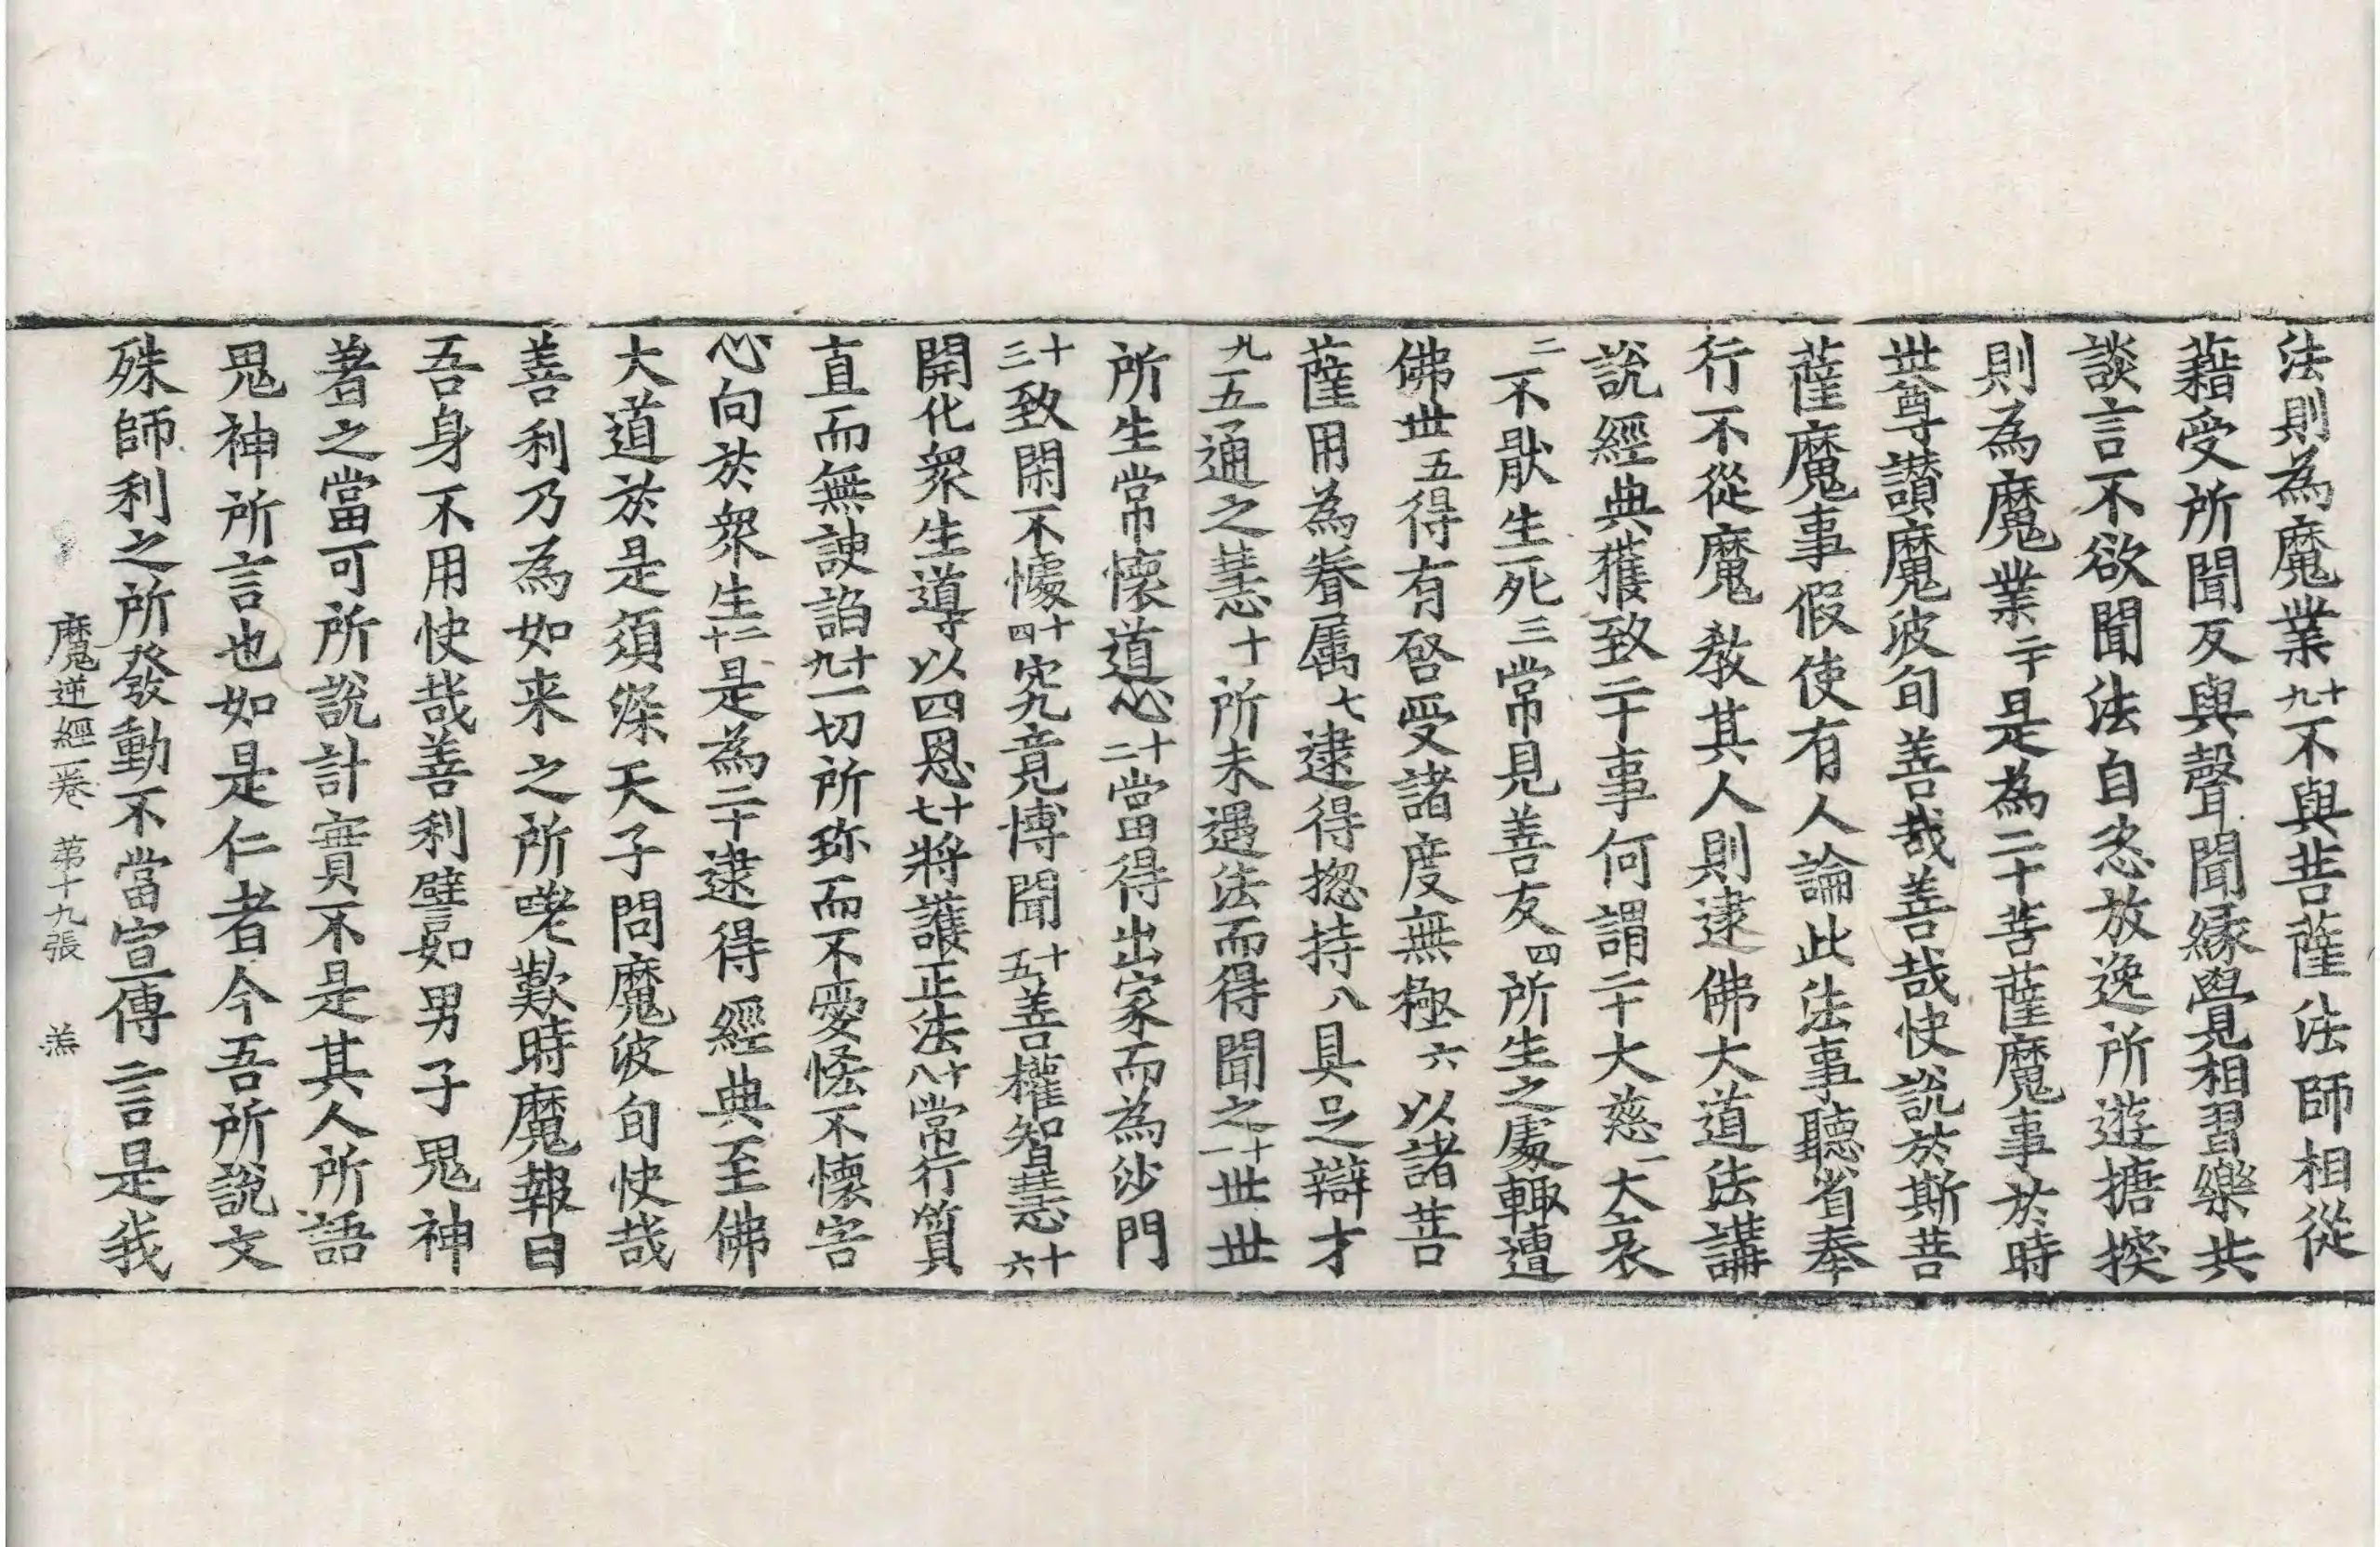 法則為魔業十九不與菩薩法師相從
藉受所聞反與聲聞緣覺相習樂共
談言不欲聞法自恣放逸所遊搪揬
則為魔業二十是為二十菩薩魔事於時
世尊讃魔波旬善哉善哉快說於斯菩
薩魔事假使有人論此法事聽省奉
行不從魔教其人則逮佛大道法講
說經典獲致二十事何謂二十大慈一大哀
二不猒生死三常見善友四所生之處輙遭
佛世五得有啓受諸度無極六以諸菩
薩用為眷属七逮得揔持八具足辯才
九五通之慧十所未遇法而得聞之十一世世
所生常懷道心十二當得出家而為沙門
十三致閑不懅十四究竟博聞十五善權智慧十六
開化衆生導以四恩十七將護正法十八常行質
直而無諛諂十九一切所珎而不愛恡不懷害
心向於衆生二十是為二十逮得經典至佛
大道於是須深天子問魔波旬快哉
善利乃為如来之所咾歎時魔報曰
吾身不用快哉善利譬如男子鬼神
著之當可所說計實不是其人所語
鬼神所言也如是仁者今吾所說文
殊師利之所發動不當宣傳言是我
魔逆經一卷 苐十九張 羔